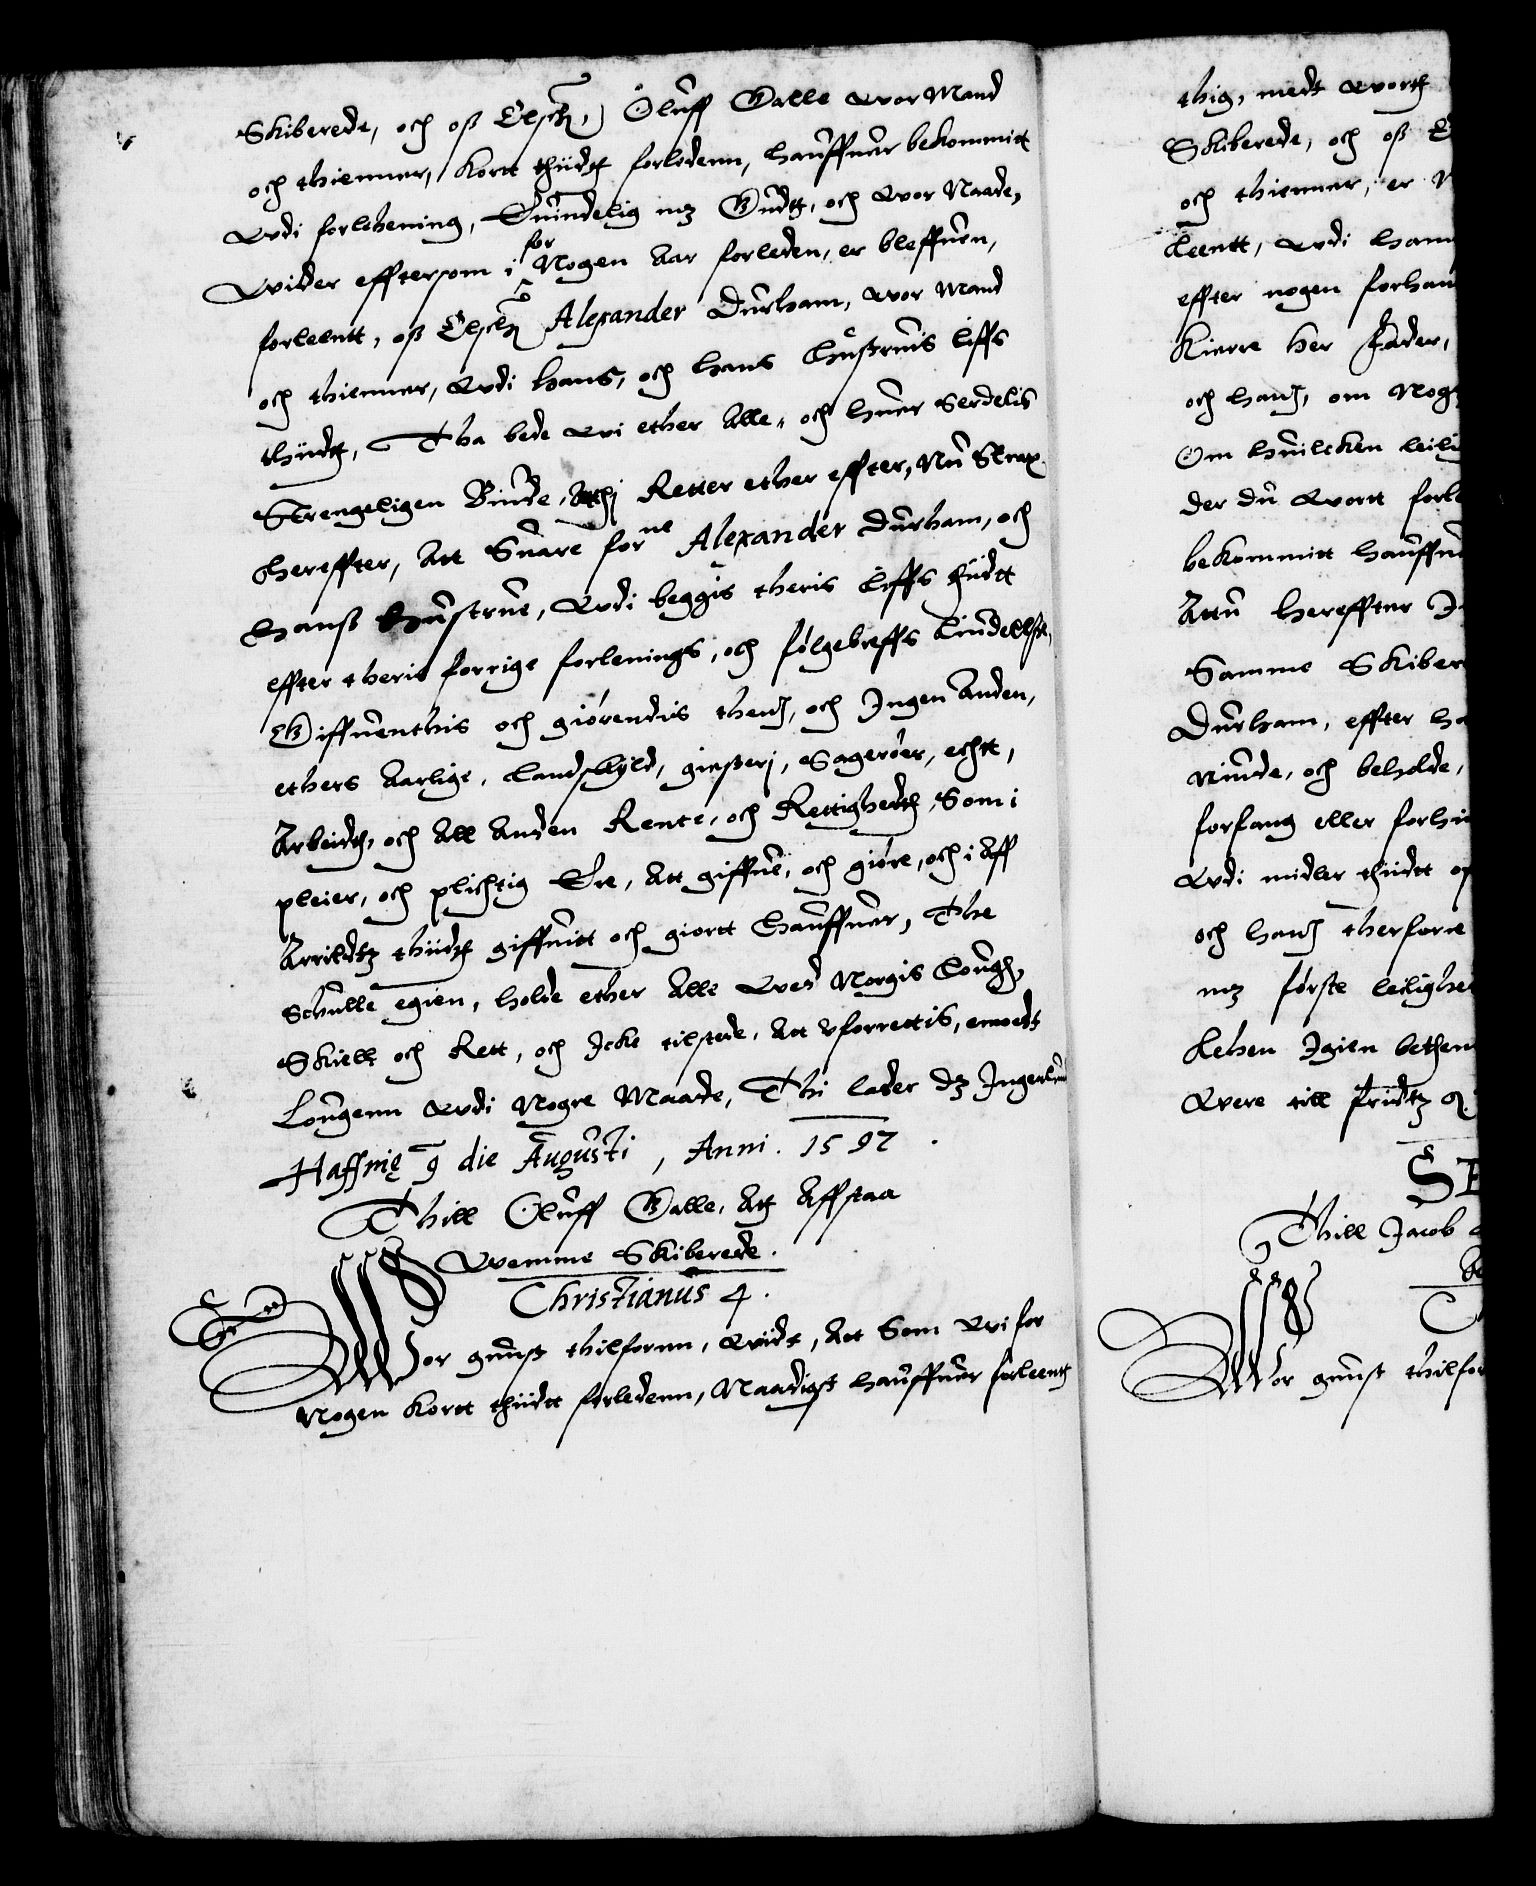 Skiberede, och oß Elsch: Oluff Galle wor Mand
och thienner, kortt thiidt forledenn, haůffuer bekommitt
wdi forlehening, Quindelig mz Gůdtz, och wor Naade,
wiider efftersom i for Nogen Aar forleden, er bleffuen,
forleentt, oß Elsch: Alexander Důrham, wor Mand
och thienner, wdi hans, och hans Hůstruis liffs
thiidt, Tha bede wi ether Alle, och huer serdelis
Strengeligen Biude, Atthj Retter ether effter, Nů Strax
hereffter, Att Suare forne Alexander Důrham, och
hanß Hůstrue, wdi beggis theris liffs thiidt
effter theris forrige forlenings, och følgebreffs liudellse,
Giffuenthis och giørendis thend, och Ingen Anden,
ethers Aarlige, landschyld, giesterj, Sagerøer, echtt,
Arbeidt, och All Anden Rente, och Rettighedt, Som i
pleier, och plichtig Ere, Att giffue, och giøre, och i Aff
Arrildtz thiidt giffuitt och giortt haůffuer, The
schulle egien, holde ether Alle wed Norgis Lough,
Skiell och Rett, och Icke tilstede, Att vforrettis, emodt
Lougenn wdi Nogre Maade, Thi lader dz Ingenlund
Haffnię 9 die Augusti, Anni. 1597.
Thill Oluff Galle, Att Affstaa
Wemme Skiberede.
Christianus 4.
Wor gunst thilfornn, Wiidt, Att Som wi for
Nogen kortt thiidtt forledenn, Naadigst haůffuer forleentt
thig, medt worth
Skiberede, och oß E
och thienner, er
leentt, wdi hann
effter nogen forhan
Kierre her Fader,
och hand, om Nog
Om huilcken leilig
der du wortt forle
bekommitt haůffue
Attu hereffter
Samme Skiber
Důrham, effter ha
Niude, och beholde,
forfang eller forhin
wdi midler thiidtt op
och hand therforre
mz første leilighe
Lehen Igien bethen
were till fridtz
Thill Jacob
Wor gunst thilfor